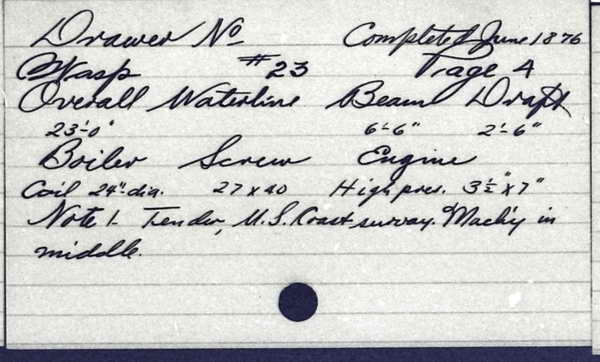 Drawer No Completed June 1876
Wasp #23 Page 4
Overall Waterline Beam Draft
23'-0" 6'-6" 2'-6"
Boiler Screw Engine
Coil 24" dia. 27 x 40 High pres. 3½" x 7"
Note 1- Tender, U.S. Coast survay. Mach'y in
middle.